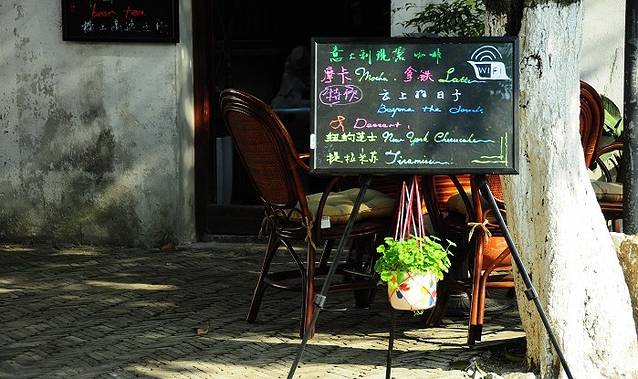 beer tea
意大利現裝咖啡
摩卡 Mocha . 拿铁 Latte
WIFI
特饮 云上的日子
Beyone the clouds
Dessert:
纽约芝士 New York Cheesecake
提拉米苏 Tiramisu